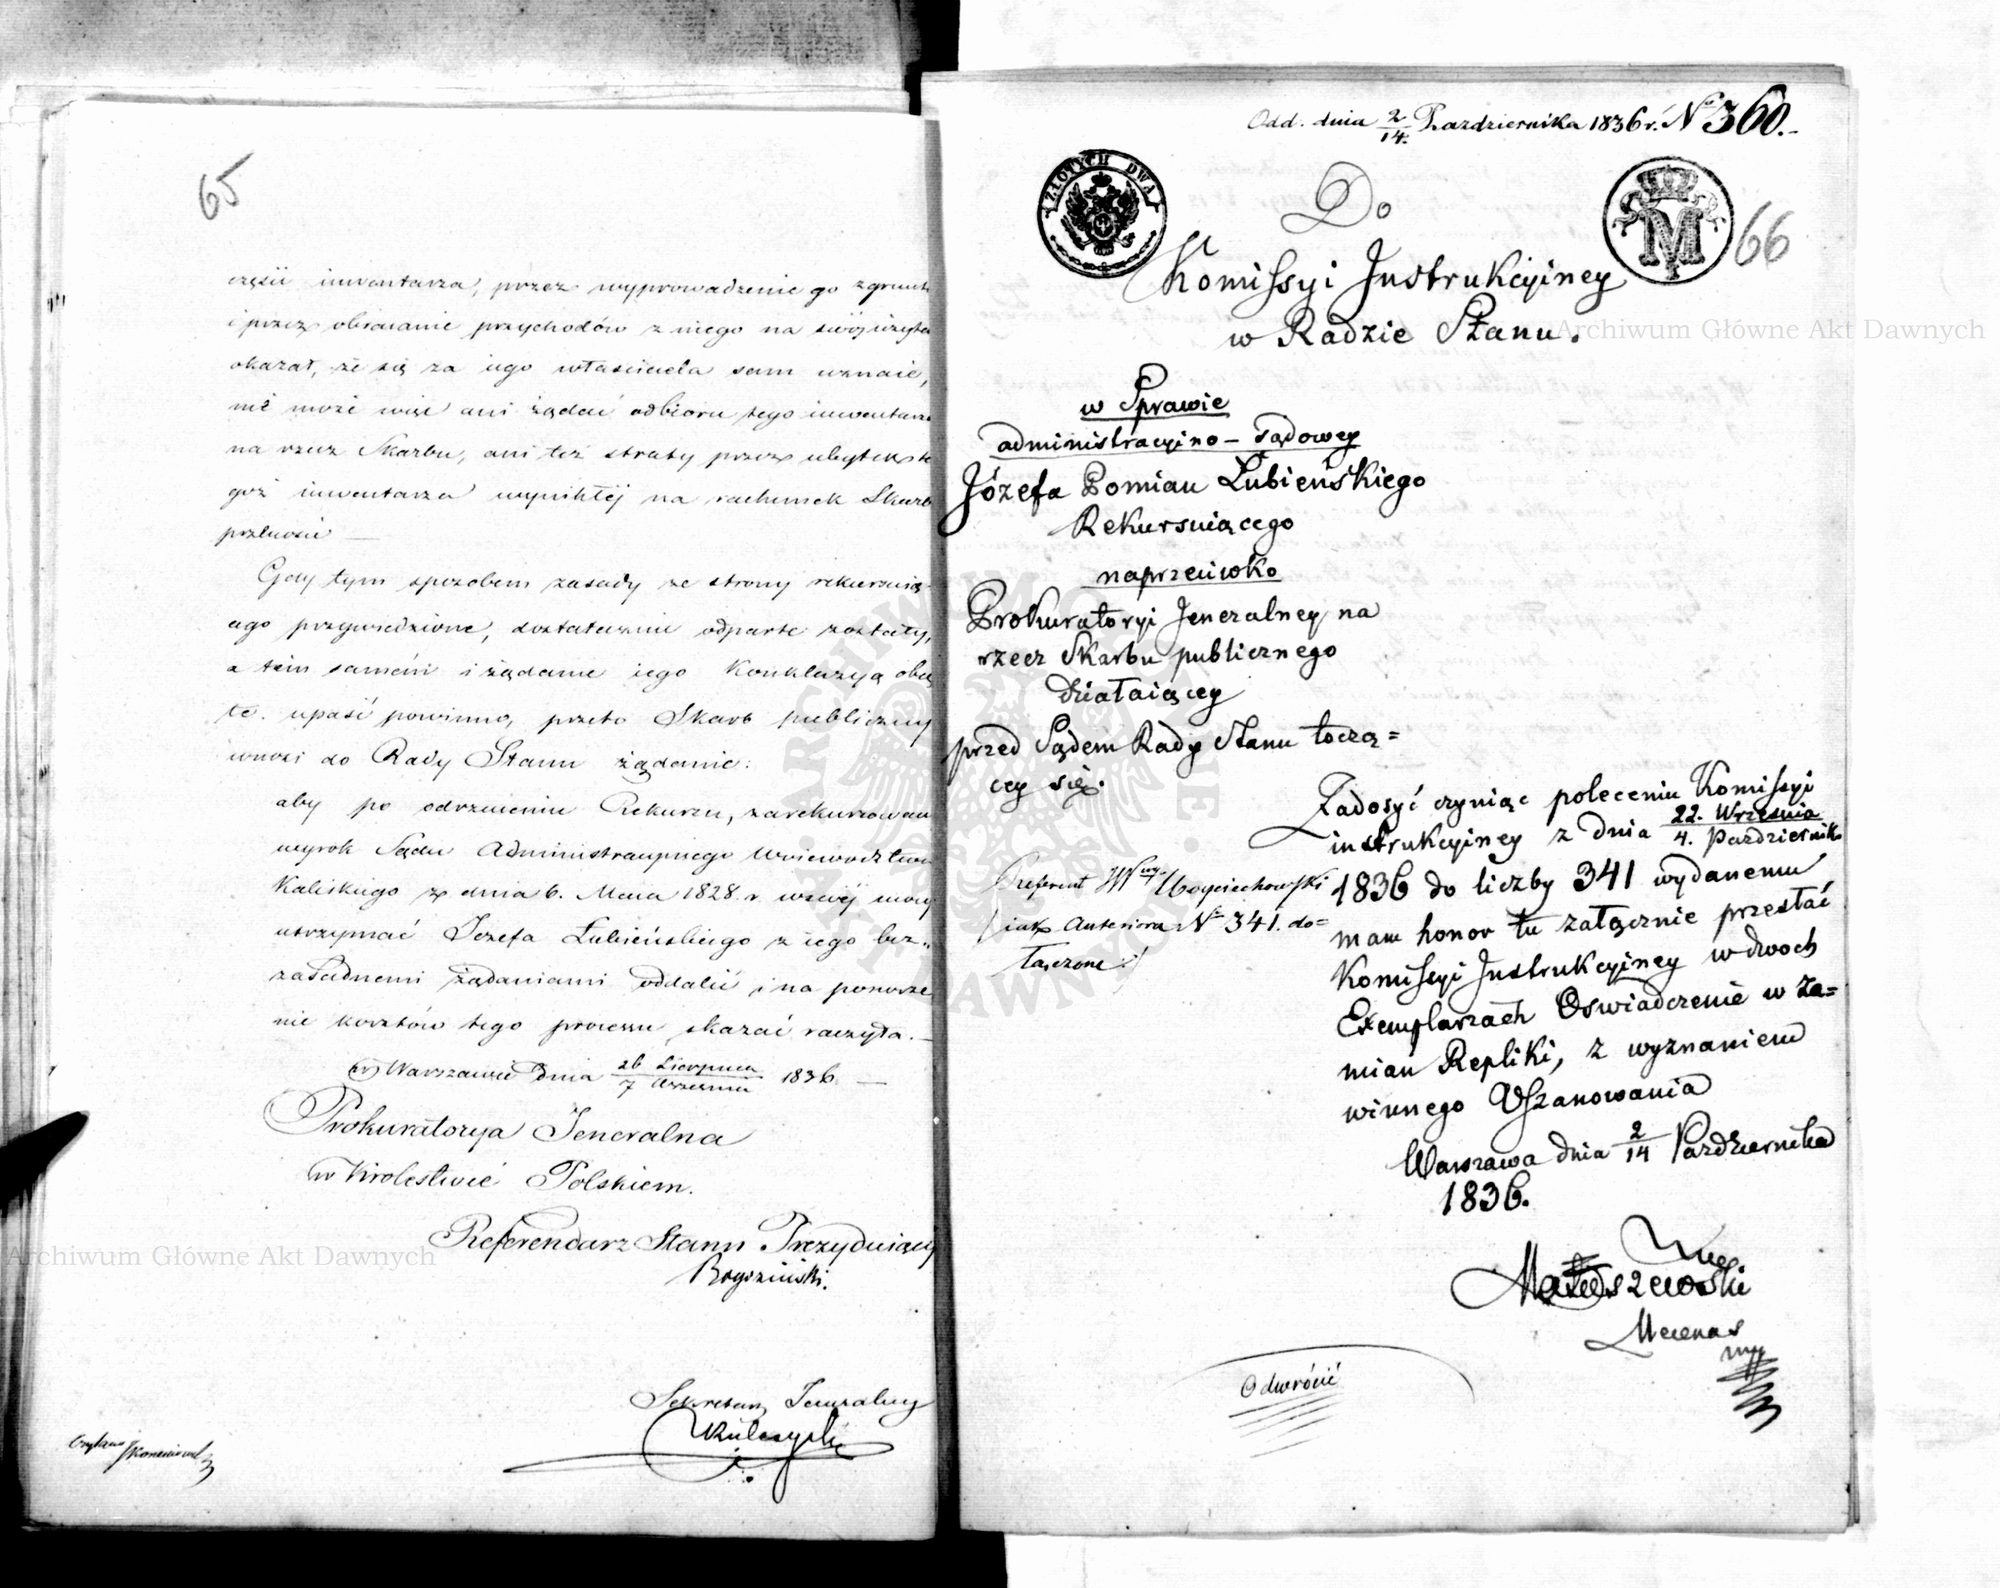 65
części inwentarza, przez wyprowadzenie go z gruntu
i przez obracanie przychodów z niego na swój użytek
okazał, że się za iego właściciela sam uznaie,
nie może więc ani żądać odbioru tego inwentarza
na rzecz Skarbu, ani też straty przez ubytek te
goż inwentarza wynikłéj na rachunek Skarbu
przenosić —
Gdy tym sposobem zasady ze strony rekursuią-
cego przywiedzione, dostatecznie odparte zostały,
a tém samém i żądanie iego Konkluzyą obię
te. upaść powinno, przeto Skarb publiczny
wnosi do Rady Stanu żądanie:
aby po odrzuceniu Rekursu, zarekursowany
wyrok Sądu Administracyinego Woiewództwa
Kaliskiego z dnia 6. Maia 1828 r. w swéj mocy
utrzymać Józefa Lubieńskiego z iego bez-
zasadnemi żądaniami oddalić i na ponosze
nie kosztów tego processu skazać raczyła. —
w Warszawie dnia 26 Sierpnia / 7 Września 1836 —
Prokuratorya Jeneralna
w Królestwie Polskiem.
Referendarz Stanu Prezyduiący
Sekretarz Jeneralny
Kulczycki
Czytano
Odd. dnia 2/14. Pazdziernika 1836 r. No 360.-
ZŁOTYCH DWA
M
66
Do
Komissyi Instrukcyiney
w Radzie Stanu.
w Sprawie
administracyino – sądowey
Józefa Pomian Łubieńskiego
Rekursuiącego
naprzeciwko
Prokuratoryi Jeneralney na
rzecz Skarbu publicznego
działaiącey
przed Sądem Rady Stanu toczą=
cey się.
Zadosyć czyniąc poleceniu Komissyi
instrukcyiney z dnia 22. Września / 4. Pazdziernika
1836 do liczby 341 wydanemu
mam honor tu załącznie przesłać
Komissyi Instrukcyiney w dwoch
Exemplarzach Oswiadczenie w za=
mian Repliki, z wyznaniem
winnego Uszanowania
Warszawa dnia 2/14 Pazdziernika
1836.
Referent JW Woyciechowski
(: iako Anteriora No 341. do=
łączone :)
Mecenas
mp
Odwrócić
Archiwum Główne Akt Dawnych
Archiwum Główne Akt Dawnych
ARCHIWUM GŁÓWNE AKT DAWNYCH